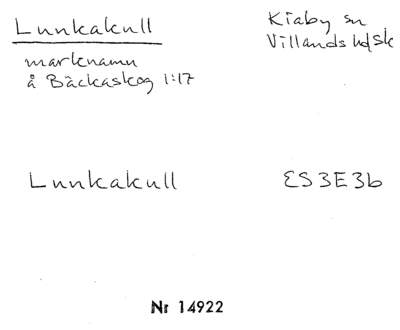 Lunkakull
Kiaby sn
Villands hd/Sk
marknamn
å Bäckaskog 1:17
Lunkakull
ES3E3b
Nr 14922